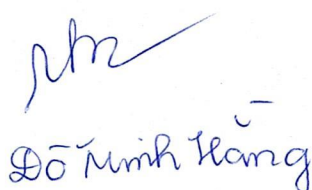 Đỗ Minh Hằng